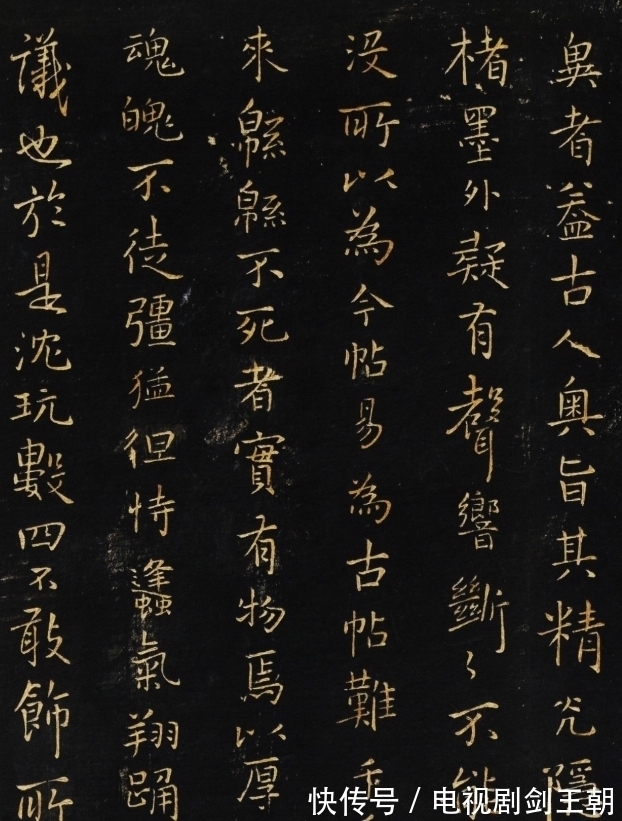 者葢古人奥旨其精光隱
楮墨外疑有聲響斷〻不能
没所以為今帖易為古帖難
來緜緜不死者實有物焉以厚
魂魄不徒彊猛但恃蠭氣翔踊
議也於是沈玩數四不敢飾所
快传号 / 电视剧剑王朝